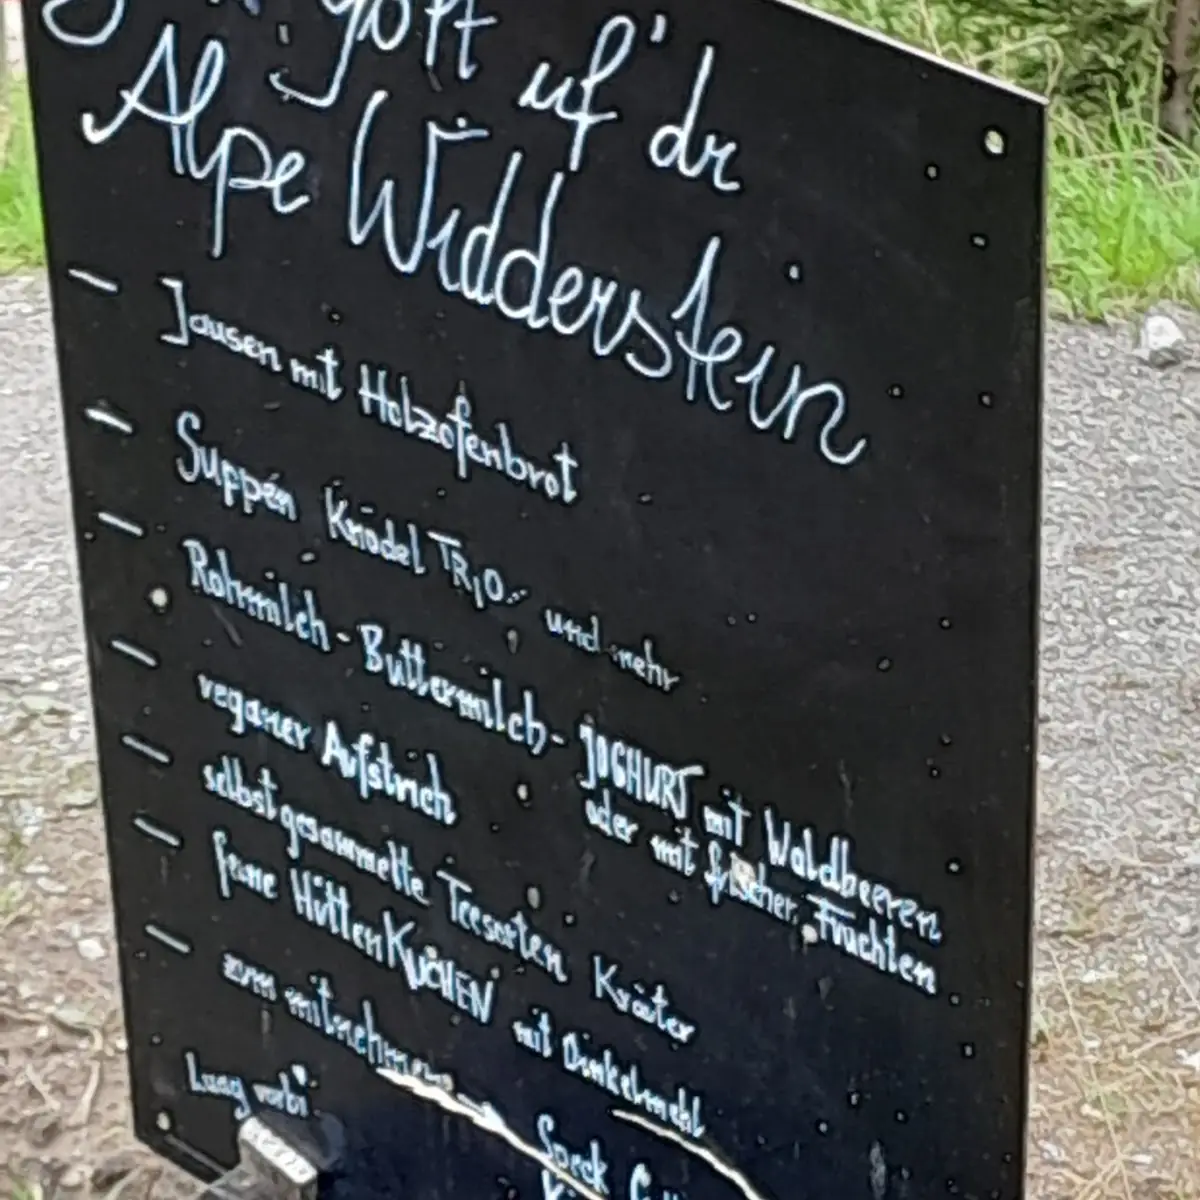 gött uf dr
Alpe Widderstein
- Jausen mit Holzofenbrot
- Suppen Knödel TRIO.. und mehr
- Rohmilch - Buttermilch - JOGHURT mit Waldbeeren
oder mit frischen Früchten
- veganer Aufstrich
- selbst gesammelte Teesorten Kräuter
- feine HüttenKUCHEN mit Dinkelmehl
- zum mitnehmen
Speck
Luag vorbi